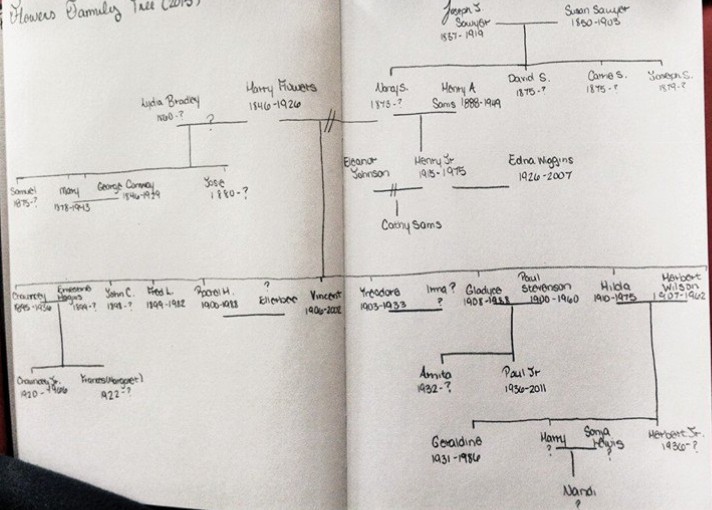 Flowers Family Tree (2015)
Joseph S
Sawyer
1857-1919
Susan Sawyer
1850-1903
Nancy S.
1873-?
Henry A
Sams 1888-1949
David S.
1875-?
Carrie S.
1875-?
Joseph S.
1879-?
Lydia Bradley
1860-?
?
Harry Flowers
1846-1926
Samuel
1875-?
Mary
1878-1943
George Conway
1846-1929
José
1880-?
Eleanor
Johnson
Henry Jr
1915-1975
Edna Wiggins
1926-2007
Cathy Sams
Chauncey
1895-1936
Ernestine
Higgins
1899-?
John C.
1898-?
Fred L.
1899-1982
Rachel H.
1900-1988
?
Ellerbee
Vincent
1906-2002
Theodore
1903-1933
Irma ?
?
Gladyce
1908-1988
Paul
Stevenson
1900-1960
Hilda
1910-1975
Herbert
Wilson
1907-1962
Chauncey Jr.
1920-1986
Frances (Margaret)
1922-?
Amita
1932-?
Paul Jr
1936-2011
Geraldine
1931-1986
Harry
?
Sonja
Lewis
?
Herbert Jr.
1936-?
Nandi
?